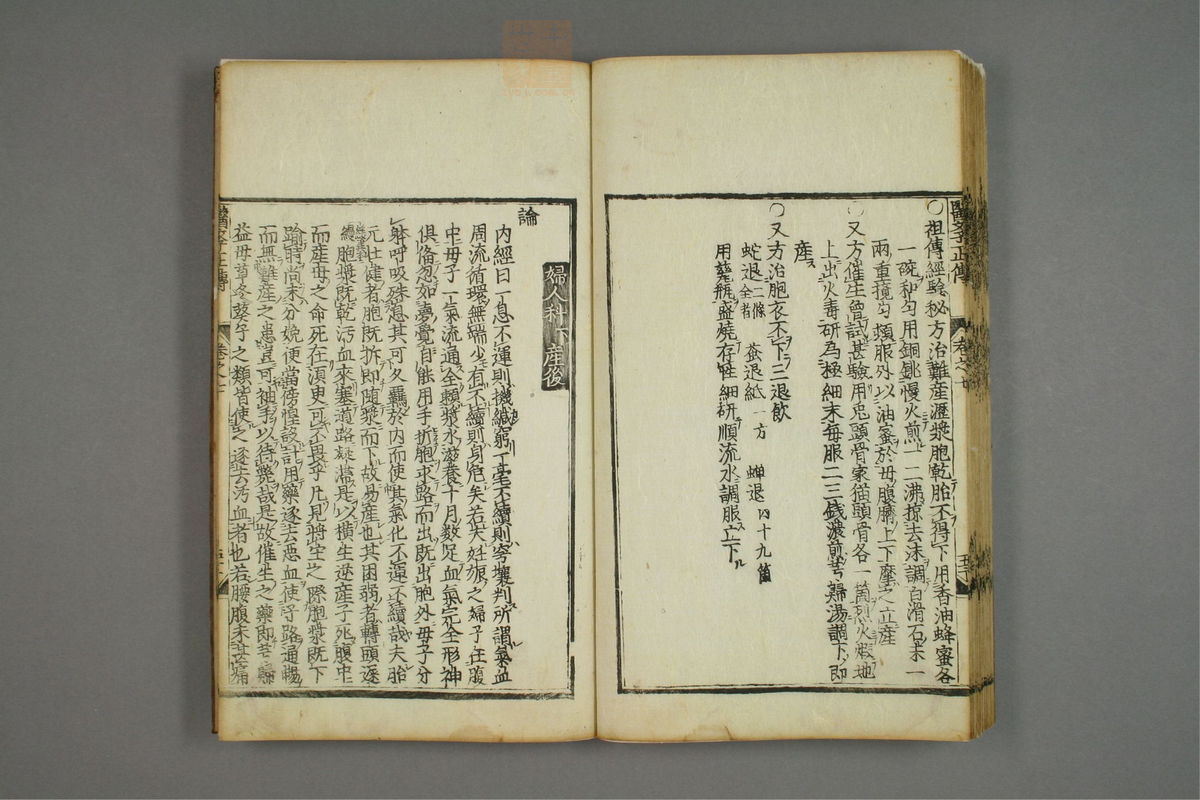 醫學正傳
卷之七
○祖傳經驗秘方治難產瀝漿胞乾胎不得下用香油蜂蜜各
一碗和勻用銅銚慢火煎一二沸掠去沫調白滑石末一
兩重攪勻頓服外以油蜜於母腹臍上下摩之立產
○又方催生曾試甚驗用兎頭骨家猫頭骨各一箇烈火煅地
上出火毒研為極細末每服二三錢濃煎芎歸湯調下即
產
○又方治胞衣不下三退飲
蛇退二條全者 蚕退紙一方 蟬退四十九箇
用甆瓶盛燒存性細研順流水調服立下
婦人科下產後
論
內經曰一息不運則機緘窮一毫不續則穹壤判所謂氣血
周流循環無端少有不續則身危矣若夫妊娠之婦子在腹
中母子一氣流通全賴漿水滋養十月数足血氣完全形神
俱俻忽如夢覺自能用手折胞求路而出既出胞外母子分
呼吸殊息其可久羈於內而使其氣化不運不續哉夫胎
元壮健者胞既拆即随漿而下故易產也其困弱者轉頭遲
緩胞漿既乾污血來塞道路凝滯是以横生逆產子死腹中
而產母之命死在須更可不畏乎凡見將生之際胞漿既下
踰時尚未分娩便當傍惶設計用藥逐去惡血使子路通暢
而無難產之患豈可袖手以待斃哉是故催生之藥即芎歸
益母草冬葵子之類皆使之逐去污血者也若腰腹未甚痛
醫學正傳
卷之七